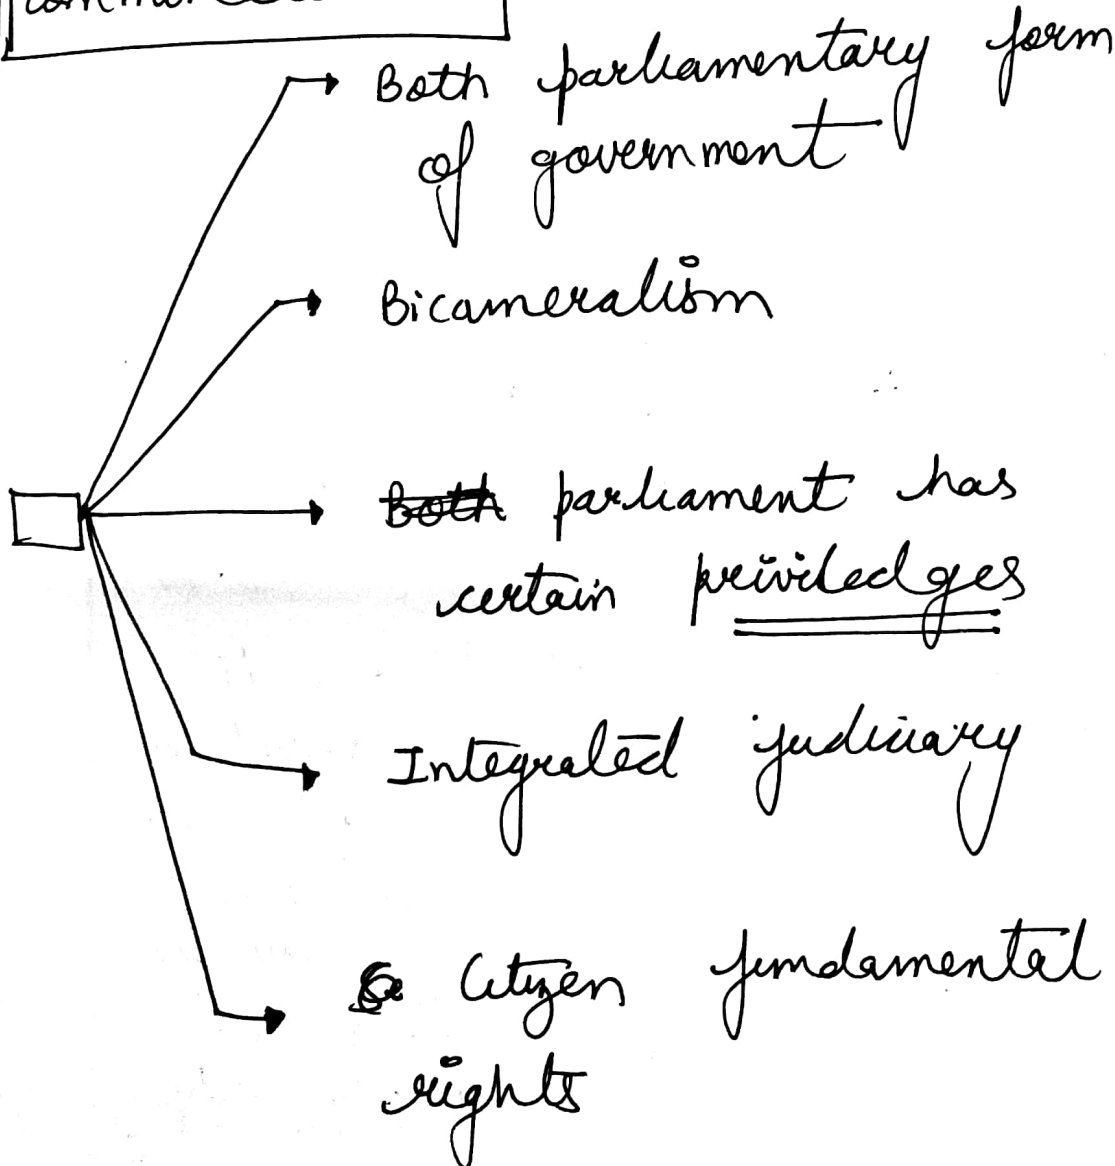 Both parliamentary form
of government
Bicameralism
parliament has
certain priviledges
Integrated judiciary
Citizen fundamental
rights